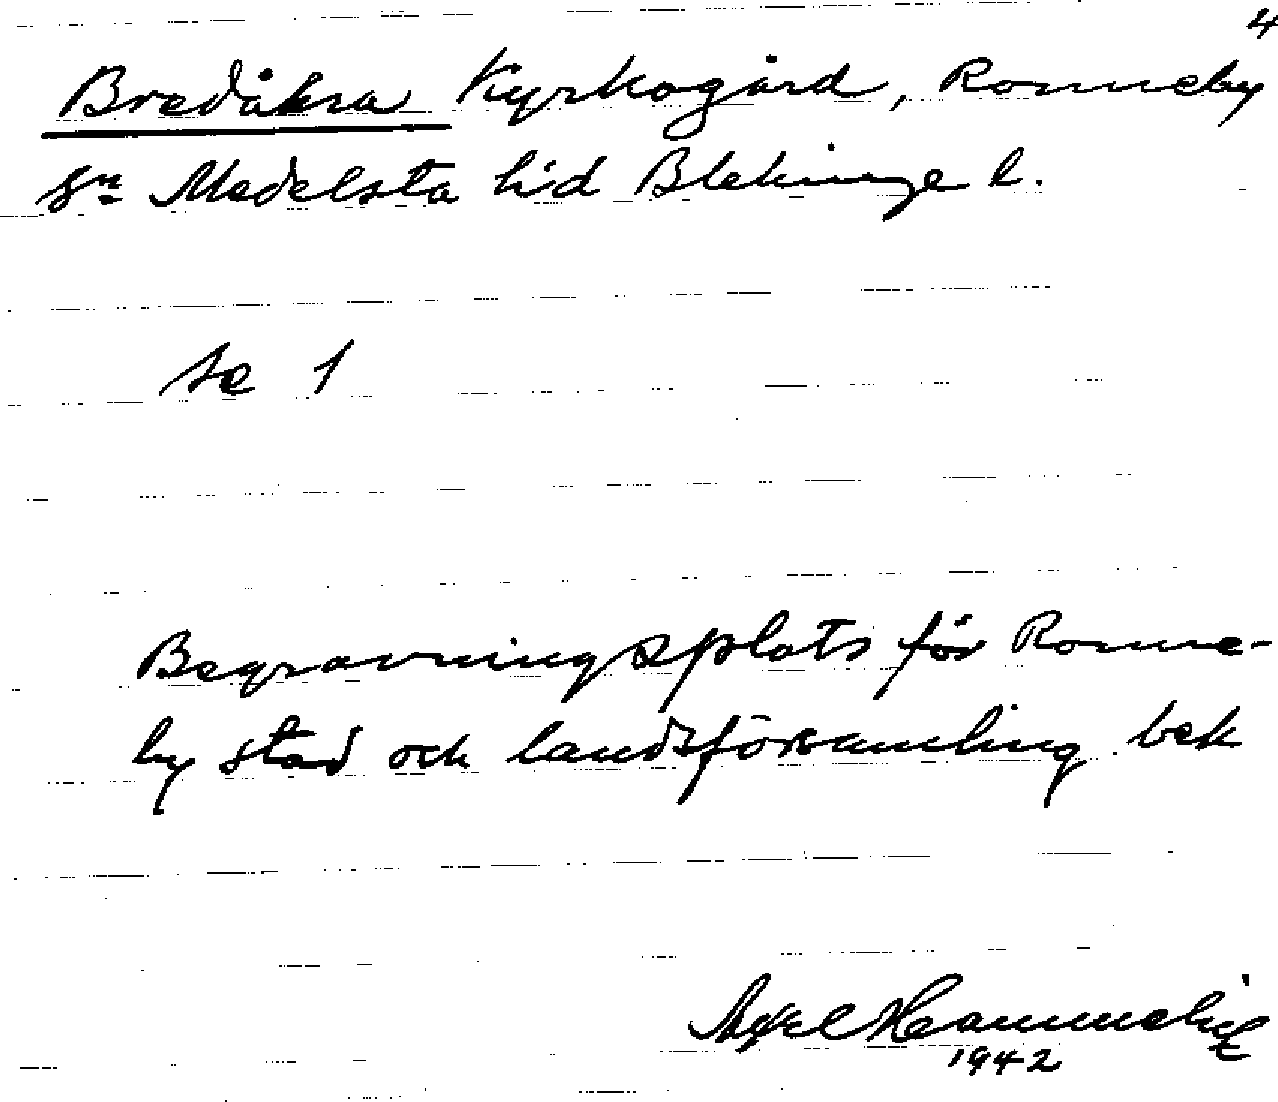 4
Bredåkra Kyrkogård, Ronneby
sn Medelsta h:d Blekinge l.
se 1
Begravningsplats för Ronne-
by stad och landsförsamling bek
Axel
1942